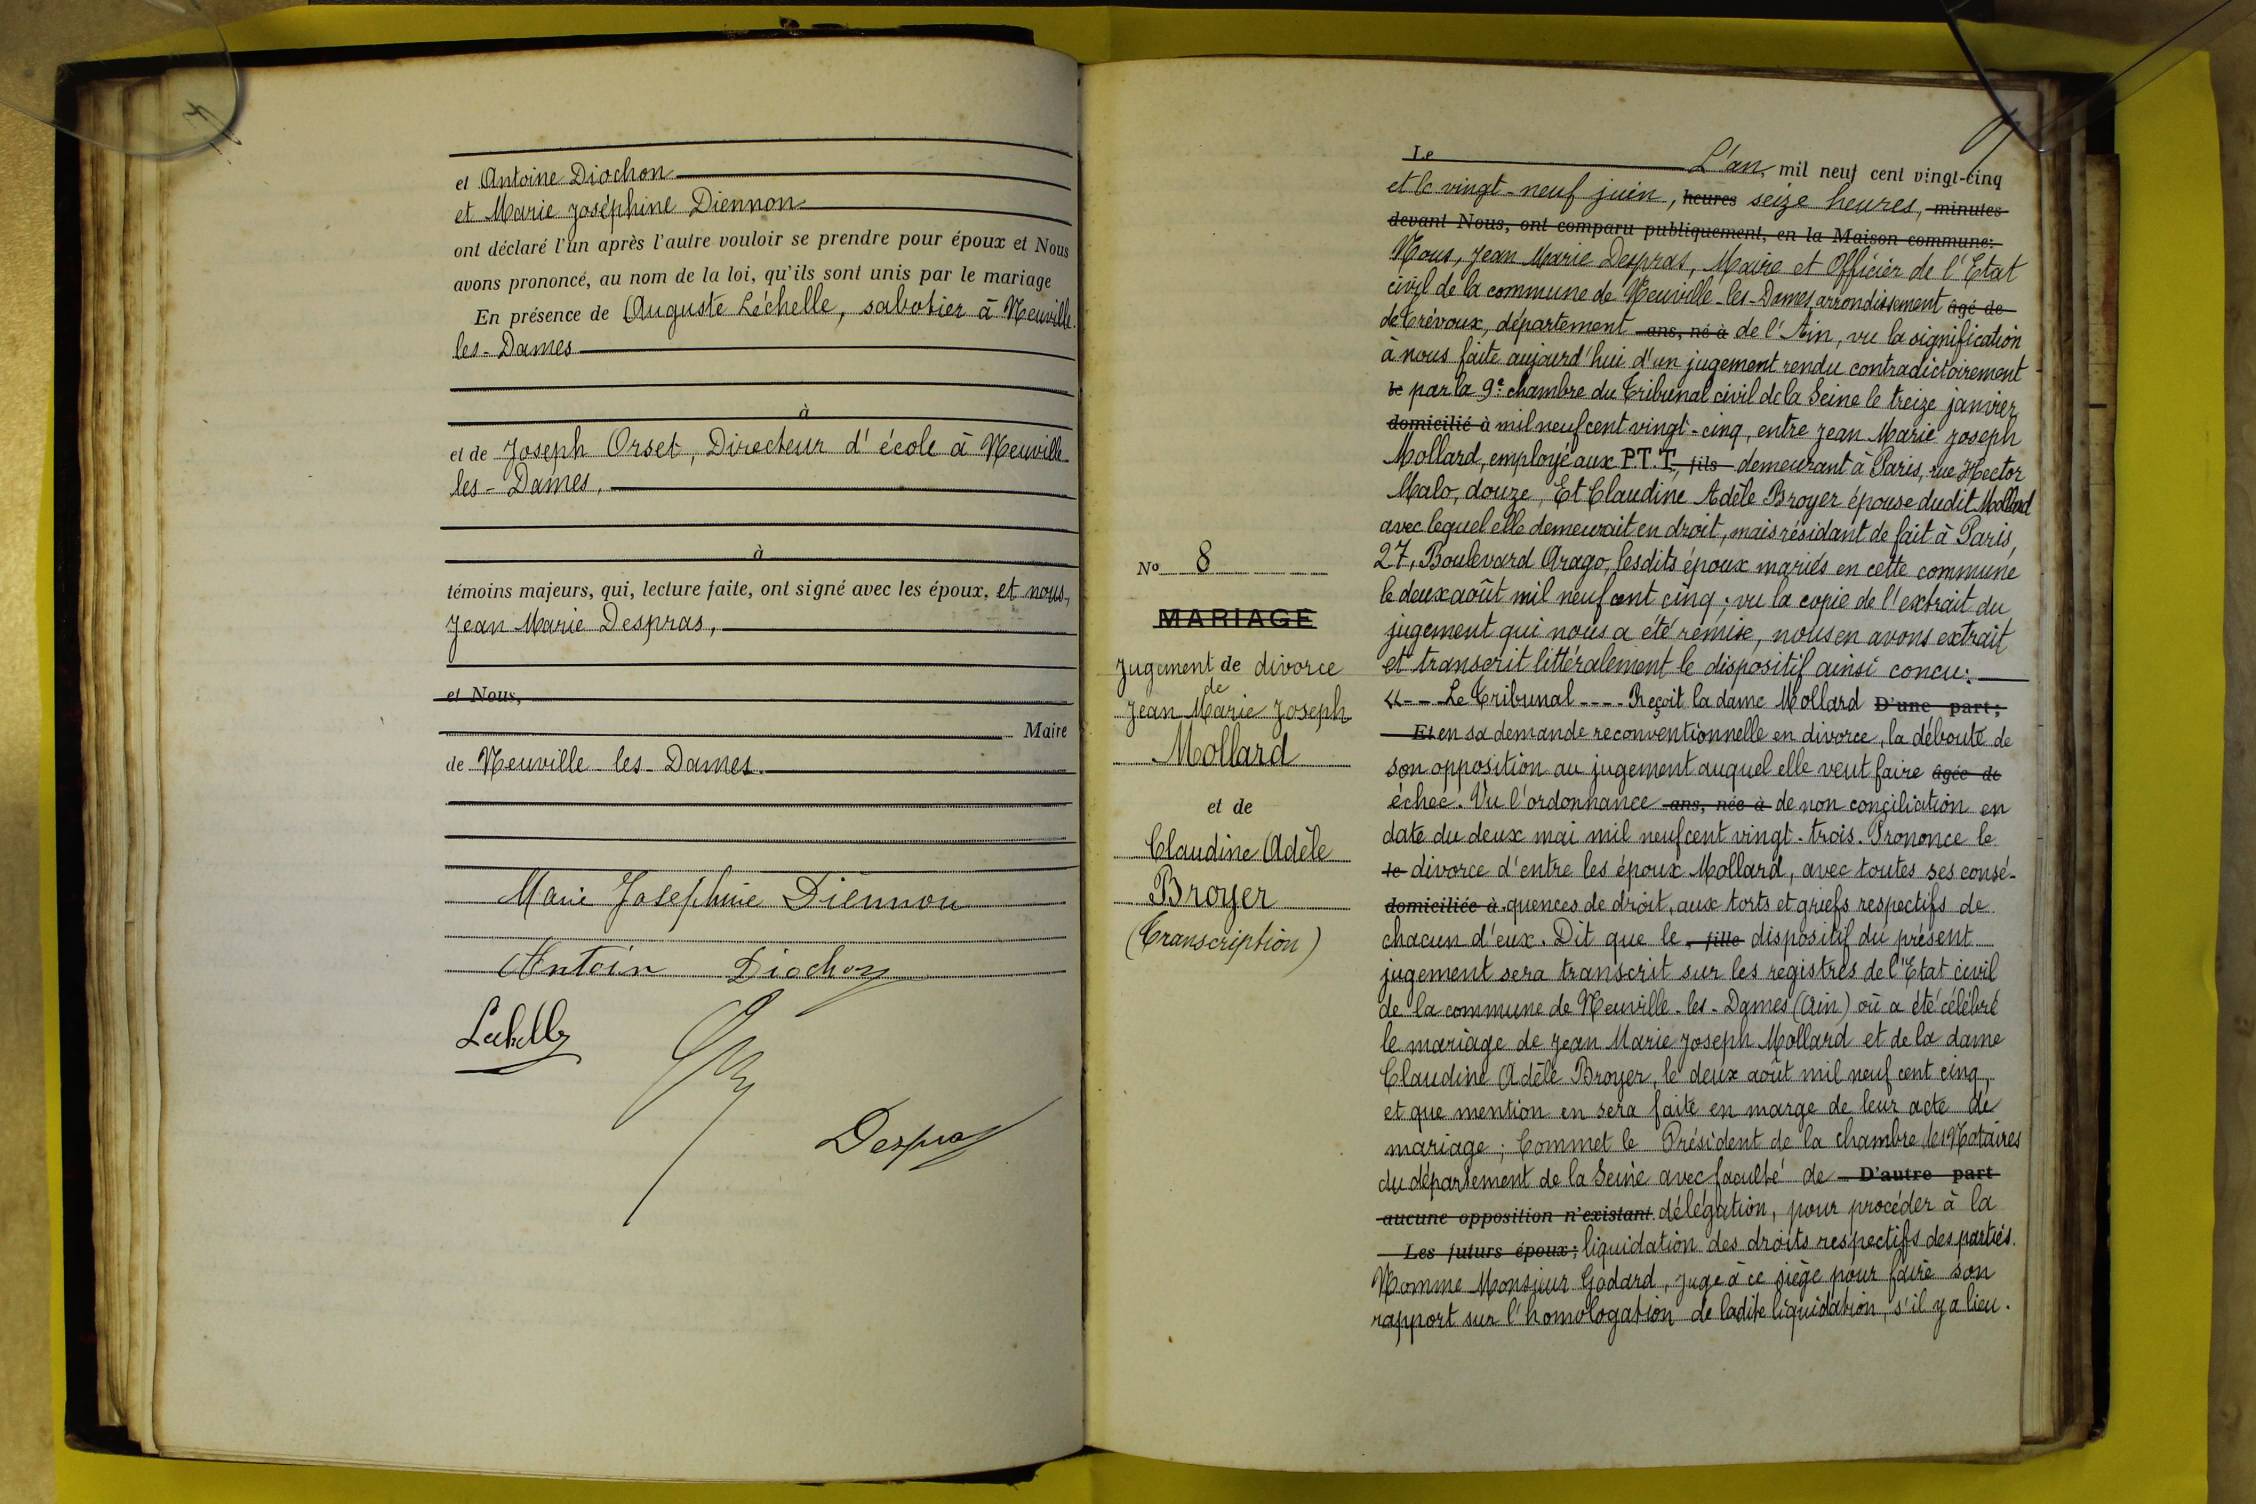 et Antoine Diochon
et Marie Joséphine Diennon
ont déclaré l'un après l'autre vouloir se prendre pour époux et Nous
avons prononcé, au nom de la loi, qu'ils sont unis par le mariage
En présence de Auguste Léchelle, sabotier à Neuville
les-Dames
à
et de Joseph Orset, Directeur d'école à Neuville
les-Dames,
à
témoins majeurs, qui, lecture faite, ont signé avec les époux, et nous,
Jean Marie Despras,
et Nous,
Maire
de Neuville-les-Dames.
Marie Josephine Diennon
Antoin Diochon
Despras
N° 8
MARIAGE
Jugement de divorce
de
Jean Marie Joseph
Mollard
et de
Claudine Adèle
Broyer
(Transcription)
Le L'an mil neuf cent vingt-cinq
et le vingt-neuf juin, heures seize heures, minutes
devant Nous, ont comparu publiquement, en la Maison commune:
Nous, Jean Marie Despras, Maire et Officier de l'Etat
civil de la commune de Neuville-les-Dames, arrondissement âgé de
de Trévoux, département ans, né à de l'Ain, vu la signification
à nous faite aujourd'hui d'un jugement rendu contradictoirement
le par la 9e chambre du Tribunal civil de la Seine le treize janvier
domicilié à mil neuf cent vingt-cinq, entre Jean Marie Joseph
Mollard, employé aux P.T.T, fils demeurant à Paris, rue Hector
Malo, douze, Et Claudine Adèle Broyer épouse dudit Mollard
avec lequel elle demeurait en droit, mais résidant de fait à Paris,
27, Boulevard Arago, lesdits époux mariés en cette commune
le deux août mil neuf cent cinq; vu la copie de l'extrait du
jugement qui nous a été remise, nous en avons extrait
et transcrit littéralement le dispositif ainsi concu:
«--- Le Tribunal ---- Reçoit la dame Mollard D'une part;
Et en sa demande reconventionnelle en divorce, la déboute de
son opposition au jugement auquel elle veut faire âgée de
échec. Vu l'ordonnance ans, née à de non conciliation en
date du deux mai mil neuf cent vingt-trois. Prononce le
le divorce d'entre les époux Mollard, avec toutes ses consé-
domiciliée à quences de droit, aux torts et griefs respectifs de
chacun d'eux. Dit que le, fille dispositif du présent
jugement sera transcrit sur les registres de l'Etat civil
de la commune de Neuville-les-Dames (Ain) où a été célébré
le mariage de Jean Marie Joseph Mollard et de la dame
Claudine Adèle Broyer, le deux août mil neuf cent cinq,
et que mention en sera faite en marge de leur acte de
mariage; Commet le Président de la chambre des Notaires
du département de la Seine avec faculté de D'autre part
aucune opposition n'existant. délégation, pour procéder à la
Les futurs époux; liquidation des droits respectifs des parties.
Nomme Monsieur Godard, Juge à ce siège pour faire son
rapport sur l'homologation de ladite liquidation, s'il y a lieu.